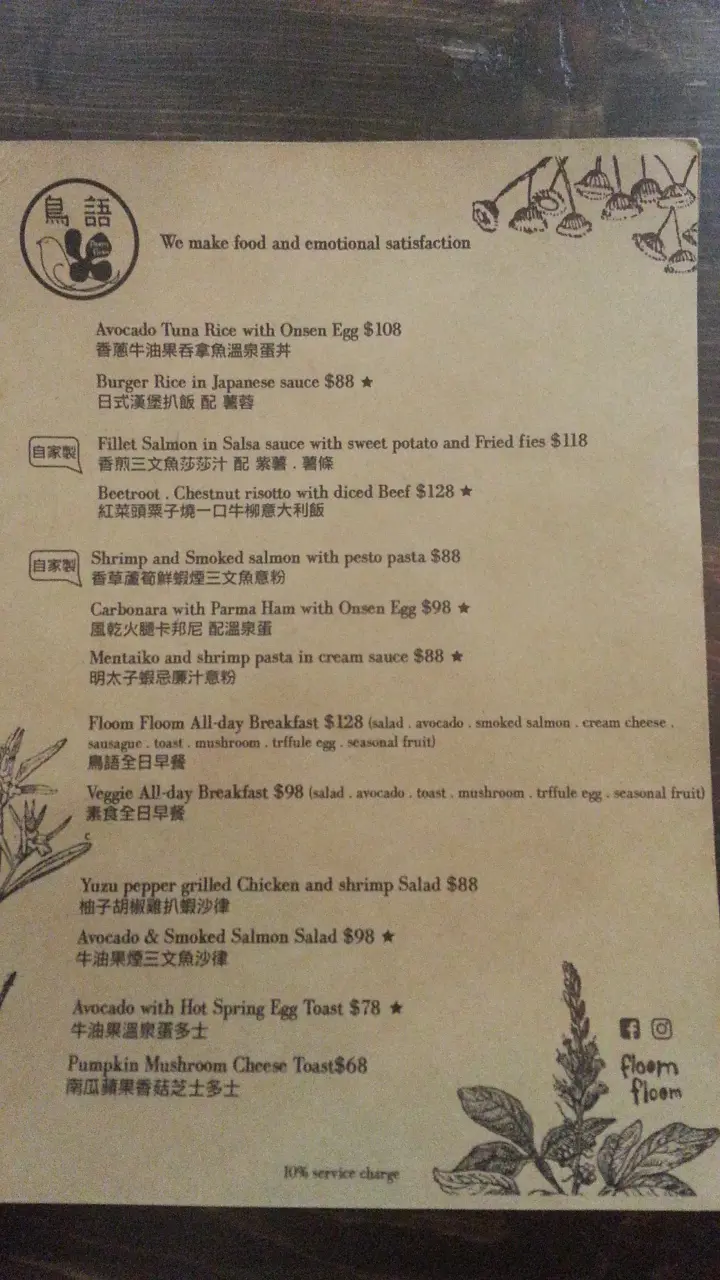 鳥語
We make food and emotional satisfaction
Avocado Tuna Rice with Onsen Egg $108
香蔥牛油果吞拿魚溫泉蛋丼
Burger Rice in Japanese sauce $88 ★
日式漢堡扒飯 配 薯蓉
自家製
Fillet Salmon in Salsa sauce with sweet potato and Fried fies $118
香煎三文魚莎莎汁 配 紫薯 . 薯條
Beetroot . Chestnut risotto with diced Beef $128 ★
紅菜頭栗子燒一口牛柳意大利飯
自家製
Shrimp and Smoked salmon with pesto pasta $88
香草蘆筍鮮蝦煙三文魚意粉
Carbonara with Parma Ham with Onsen Egg $98 ★
風乾火腿卡邦尼 配溫泉蛋
Mentaiko and shrimp pasta in cream sauce $88 ★
明太子蝦忌廉汁意粉
Floom Floom All-day Breakfast $128 (salad . avocado . smoked salmon . cream cheese .
sausague . toast . mushroom . trffule egg . seasonal fruit)
鳥語全日早餐
Veggie All-day Breakfast $98 (salad . avocado . toast . mushroom . trffule egg . seasonal fruit)
素食全日早餐
c
Yuzu pepper grilled Chicken and shrimp Salad $88
柚子胡椒雞扒蝦沙律
Avocado & Smoked Salmon Salad $98 ★
牛油果煙三文魚沙律
Avocado with Hot Spring Egg Toast $78 ★
牛油果溫泉蛋多士
Pumpkin Mushroom Cheese Toast$68
南瓜蘋果香菇芝士多士
floom
floom
10% service charge